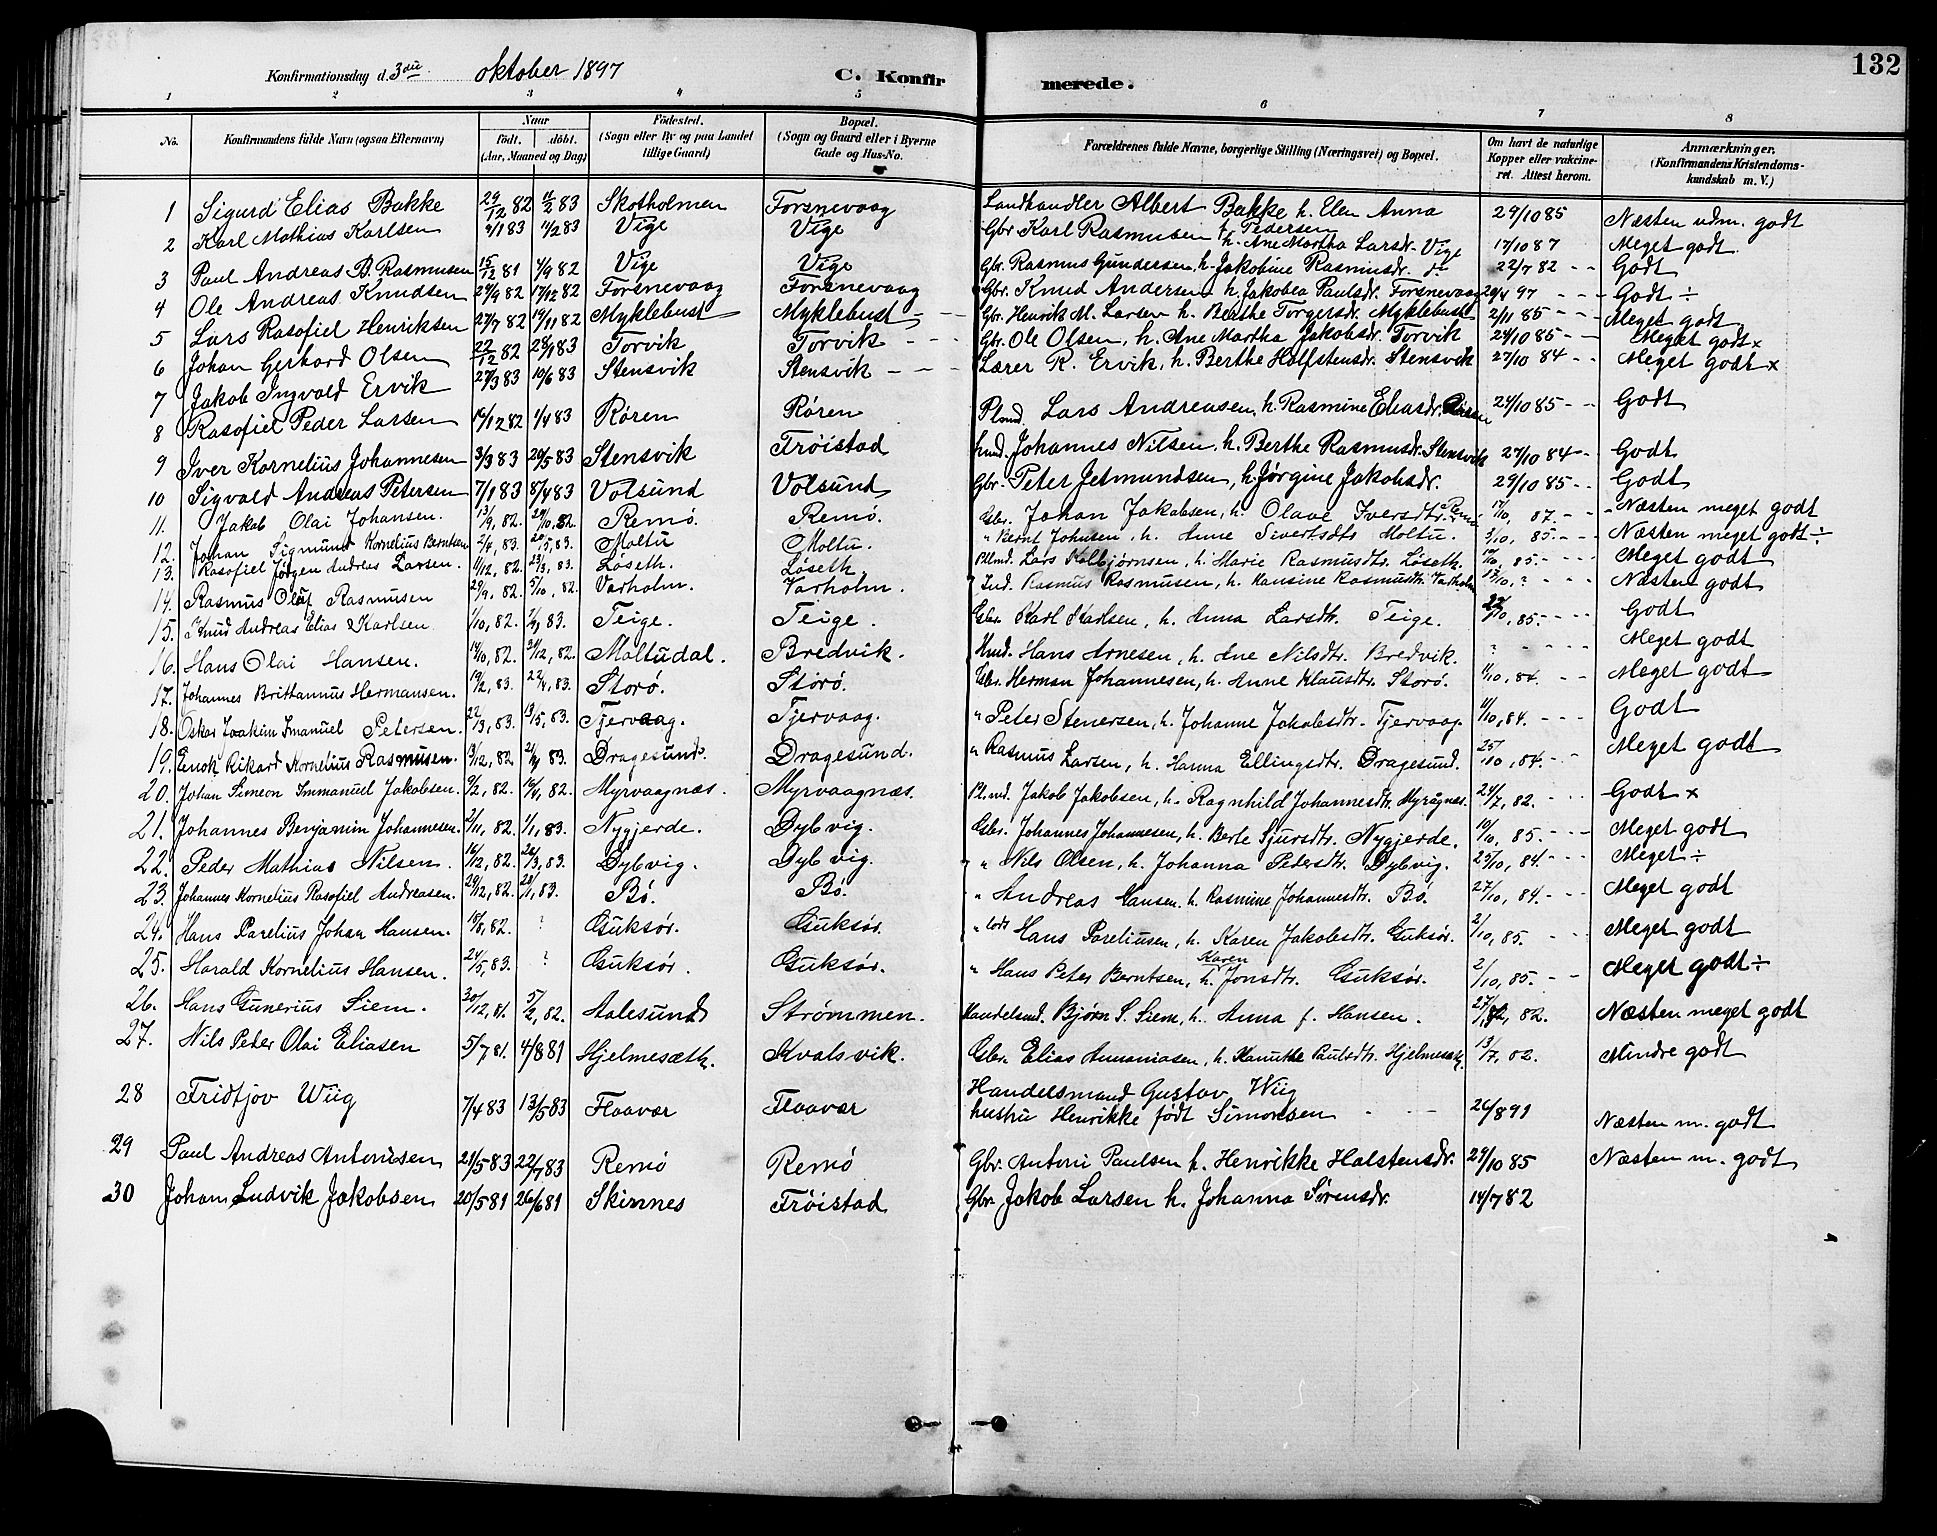 132
Konfirmationsdag d. 3die oktober 1897 C. Konfirmerede.
1 2 3 4 5 6 7 8
No. Konfirmandens fulde Navn (ogsaa Efternavn) Naar födt. döbt. (Aar, Maaned og Dag) Födested. (Sogn eller By og paa Landet tillige Gaard) Bopæl. (Sogn og Gaard eller i Byerne Gade og Hus-No. Forældrenes fulde Navne, borgerlige Stilling (Næringsvei) og Bopæl. Om havt de naturlige Kopper eller vakcineret. Attest herom. Anmærkninger. (Konfirmandens Kristendomskundskab m. V.)
1 Sigurd Elias Bakke 29/12 82 11/2 83 Skotholmen Forsnevaag Landhandler Albert Bakke h. Elen Anna f. Pedersen 29/10 85 Næsten udm. godt
2 Karl Mathias Karlsen 9/1 83 11/2 83 Vige Vige Gbr Karl Rasmusen h. Ane Martha Larsdr. Vige 17/10 87 Meget godt
3 Paul Andreas B. Rasmusen 15/12 81 4/9 82 Vige Vige Gbr. Rasmus Gundersen, h. Jakobine Rasmusdr. do 22/7 82 - - Godt
4 Ole Andreas Knudsen 24/9 82 17/12 82 Forsnevaag Forsnevaag Gbr. Knud Andersen h. Jakobea Paulsdr. Forsnevaag 97 - - - Godt ÷
5 Lars Rasofiel Henriksen 27/7 82 19/11 82 Myklebust Myklebust - - Gbr. Henrik M. Larsen h. Berthe Torgersdr. Myklebust 2/11 85 - - - Meget godt
6 Johan Gerhard Olsen 22/12 82 28/1 83 Torvik Torvik - - - Gbr. Ole Olsen, h. Ane Martha Jakobsdr. Torvik 24/10 85 - - Meget godt x
7 Jakob Ingvald Ervik 27/3 83 10/6 83 Stensvik Stensvik - - - Lærer R. Ervik, h. Berthe Holfstensdr. Stensvik 27/10 84 - - Meget godt x
8 Rasofiel Peder Larsen 14/12 82 1/4 83 Røren Røren Plmd. Lars Andreasen, h. Rasmine Eliasdr. Røren 24/10 85 - - Godt
9 Iver Kornelius Johannesen 3/3 83 20/5 83 Stensvik Frøistad hmd. Johannes Nilsen, h. Berthe Rasmusdr. Stensvik 27/10 84 - - Godt
10 Sigvald Andreas Petersen 7/1 83 8/4 83 Volsund Volsund Gbr. Peter Jetmundsen, h. Jørgine Jakobsdr. 29/10 85 - - Godt
11. Jakob Olai Johansen. 13/9, 82. 29/10, 82. Remö. Remö. Gbr. Johan Jakobsen, h. Olave Iversdtr. Remö 17/10, 87 - - Næsten meget godt
12. Johan Sigmund Kornelius Berntsen 2/4, 83. 20/5, 83. Moltu Moltu. " Bernt Johnsen, h. Anne Sivertsdtr Moltu. 3/10, 85. - - - Næsten meget godt ÷
13. Rasofiel Jørgen Andreas Larsen. 11/12, 82. 23/3, 83. Löseth. Löseth. Plmd. Lars Kolbjørnsen, h. Marie Rasmusdtr. Löseth. 17/10, 85. - - - Meget godt
14. Rasmus Oluf Rasmusen 29/9, 82. 5/10, 82. Varholm. Varholm. Ind. Rasmus Rasmusen, h. Hansine Rasmusdtr. Varholm 13/10, ? - - - Næsten godt
15. Knud Andreas Elias Karlsen 1/10, 82. 1/1, 83. Teige. Teige. Gbr. Karl Karlsen, h. Anna Larsdtr. Teige. 22/10, 85. - - - Godt
16. Hans Olai Hansen. 14/10, 82. 31/12, 82. Moltudal. Bredvik. Hmd. Hans Arnesen, h. Ane Nilsdtr. Bredvik. ? - - - - Meget godt
17. Johannes Brittannus Hermansen. 19/2, 83. 22/4, 83. Storö. Storö. Gbr. Herman Johannesen, h. Anne Klausdtr. Storö. 11/10, 84. - - - Meget godt
18. Oskar Joakim Imanuel Petersen. 22/3, 83. 13/5, 83. Tjervaag. Tjervaag. " Peter Stenersen, h. Johanne Jakobsdtr. Tjervaag. 11/10, 84. - - - Godt
19. Enok Rikard Kornelius Rasmusen. 13/12, 82 2/4, 83. Dragesund. Dragesund. " Rasmus Larsen, h. Hanna Ellingsdtr. Dragesund. 25/10, 84. - - Meget godt
20. Johan Simeon Immanuel Jakobsen. 9/2, 82. 10/4, 82. Myrvaagnæs. Myrvaagnæs. Pl.md. Jakob Jakobsen, h. Ragnhild Johannesdtr. Myragnes. 24/7, 82. - - - Godt x
21. Johannes Benjamin Johannesen. 2/11, 82. 1/1, 83. Nygjerde. Dybvig. Gbr. Johannes Johannesen, h. Berte Sjursdtr. Nygjerde. 10/10, 85. - - - Meget godt
22. Peder Mathias Nilsen. 16/12, 82. 26/3, 83. Dybvig. Dybvig. " Nils Olsen, h. Johanna Petersdtr. Dybvig. 25/10, 84. - - - Meget ÷
23. Johannes Kornelius Rasofiel Andreasen. 29/12, 82. 28/1, 83. Bö. Bö. " Andreas Hansen h. Rasmine Johannesdtr. Bö. 27/10, 84. - - - Meget godt
24. Hans Parelius Johan Hansen. 18/8, 82. ? Guksør. Guksør. " lods Hans Pareliusen, h. Karen Jakobsdtr. Guksør. 2/10, 85. - - Meget godt
25. Harald Kornelius Hansen. 24/5, 83. ? Guksør. Guksør. " Hans Peter Berntsen, h. Karen Jonsdtr. Guksør. 2/10, 85. - - Meget godt ÷
26. Hans Gunerius Siem. 30/12, 81. 5/2, 82. Aalesund Strømmen. Handelsmd. Bjørn S. Siem, h. Anna f. Hansen. 82. Næsten meget godt
27. Nils Peter Olai Eliasen 5/7 81. 4/8 81 Hjelmesæth. Kvalsvik. Gbr. Elias Annaniasen, h. Hanukke Paulsdtr. Hjelmesæth. 13/7, 82. Mindre godt
28 Fridtjov Wiig 7/4 83 13/5 83 Flaavær Flaavær Handelsmand Gustav Wiig hustru Henrikke født Simonsen - - 26/8 91 Næsten m. godt
29 Paul Andreas Antonisen 21/5 83 22/7 83 Remö Remö Gbr. Antoni Paulsen h. Henrikke Halstensdr. 29/10 85 Næsten m. godt
30 Johan Ludvik Jakobsen 20/5 81 26/6 81 Skinnes Frøistad Gbr. Jakob Larsen h. Johanna Sørensdr. 14/7 82